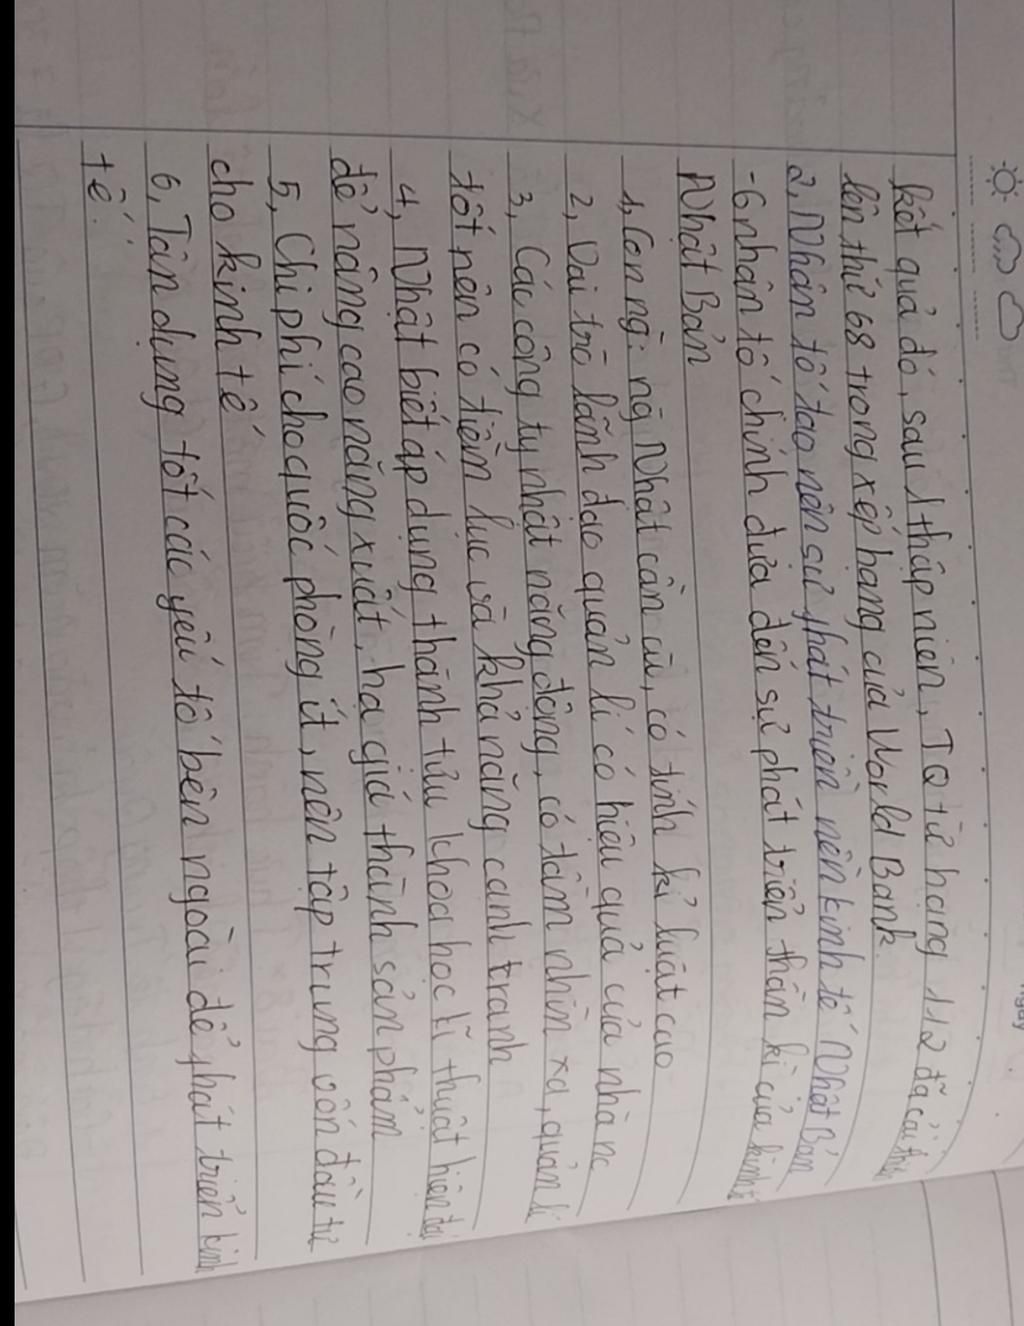 kết quả đó, sau 1 thập niên, TQ từ hạng 112 đã cải thiện
lên thứ 68 trong xếp hạng của World Bank
2, Nhân tố tạo nên sự phát triển nền kinh tế Nhật Bản
- 6 nhân tố chính đưa đến sự phát triển thần kì của kinh tế
Nhật Bản
1, Con ng: ng Nhật cần cù, có tính kỉ luật cao
2, Vai trò lãnh đạo quản lí có hiệu quả của nhà nc
3, Các công ty nhật năng động, có tầm nhìn xa, quản lí
tốt nên có tiềm lực và khả năng cạnh tranh
4, Nhật biết áp dụng thành tựu khoa học kĩ thuật hiện đại
để nâng cao năng xuất, hạ giá thành sản phẩm
5, Chi phí cho quốc phòng ít, nên tập trung vốn đầu tư
cho kinh tế
6, Tận dụng tốt các yếu tố bên ngoài để phát triển kinh
tế.